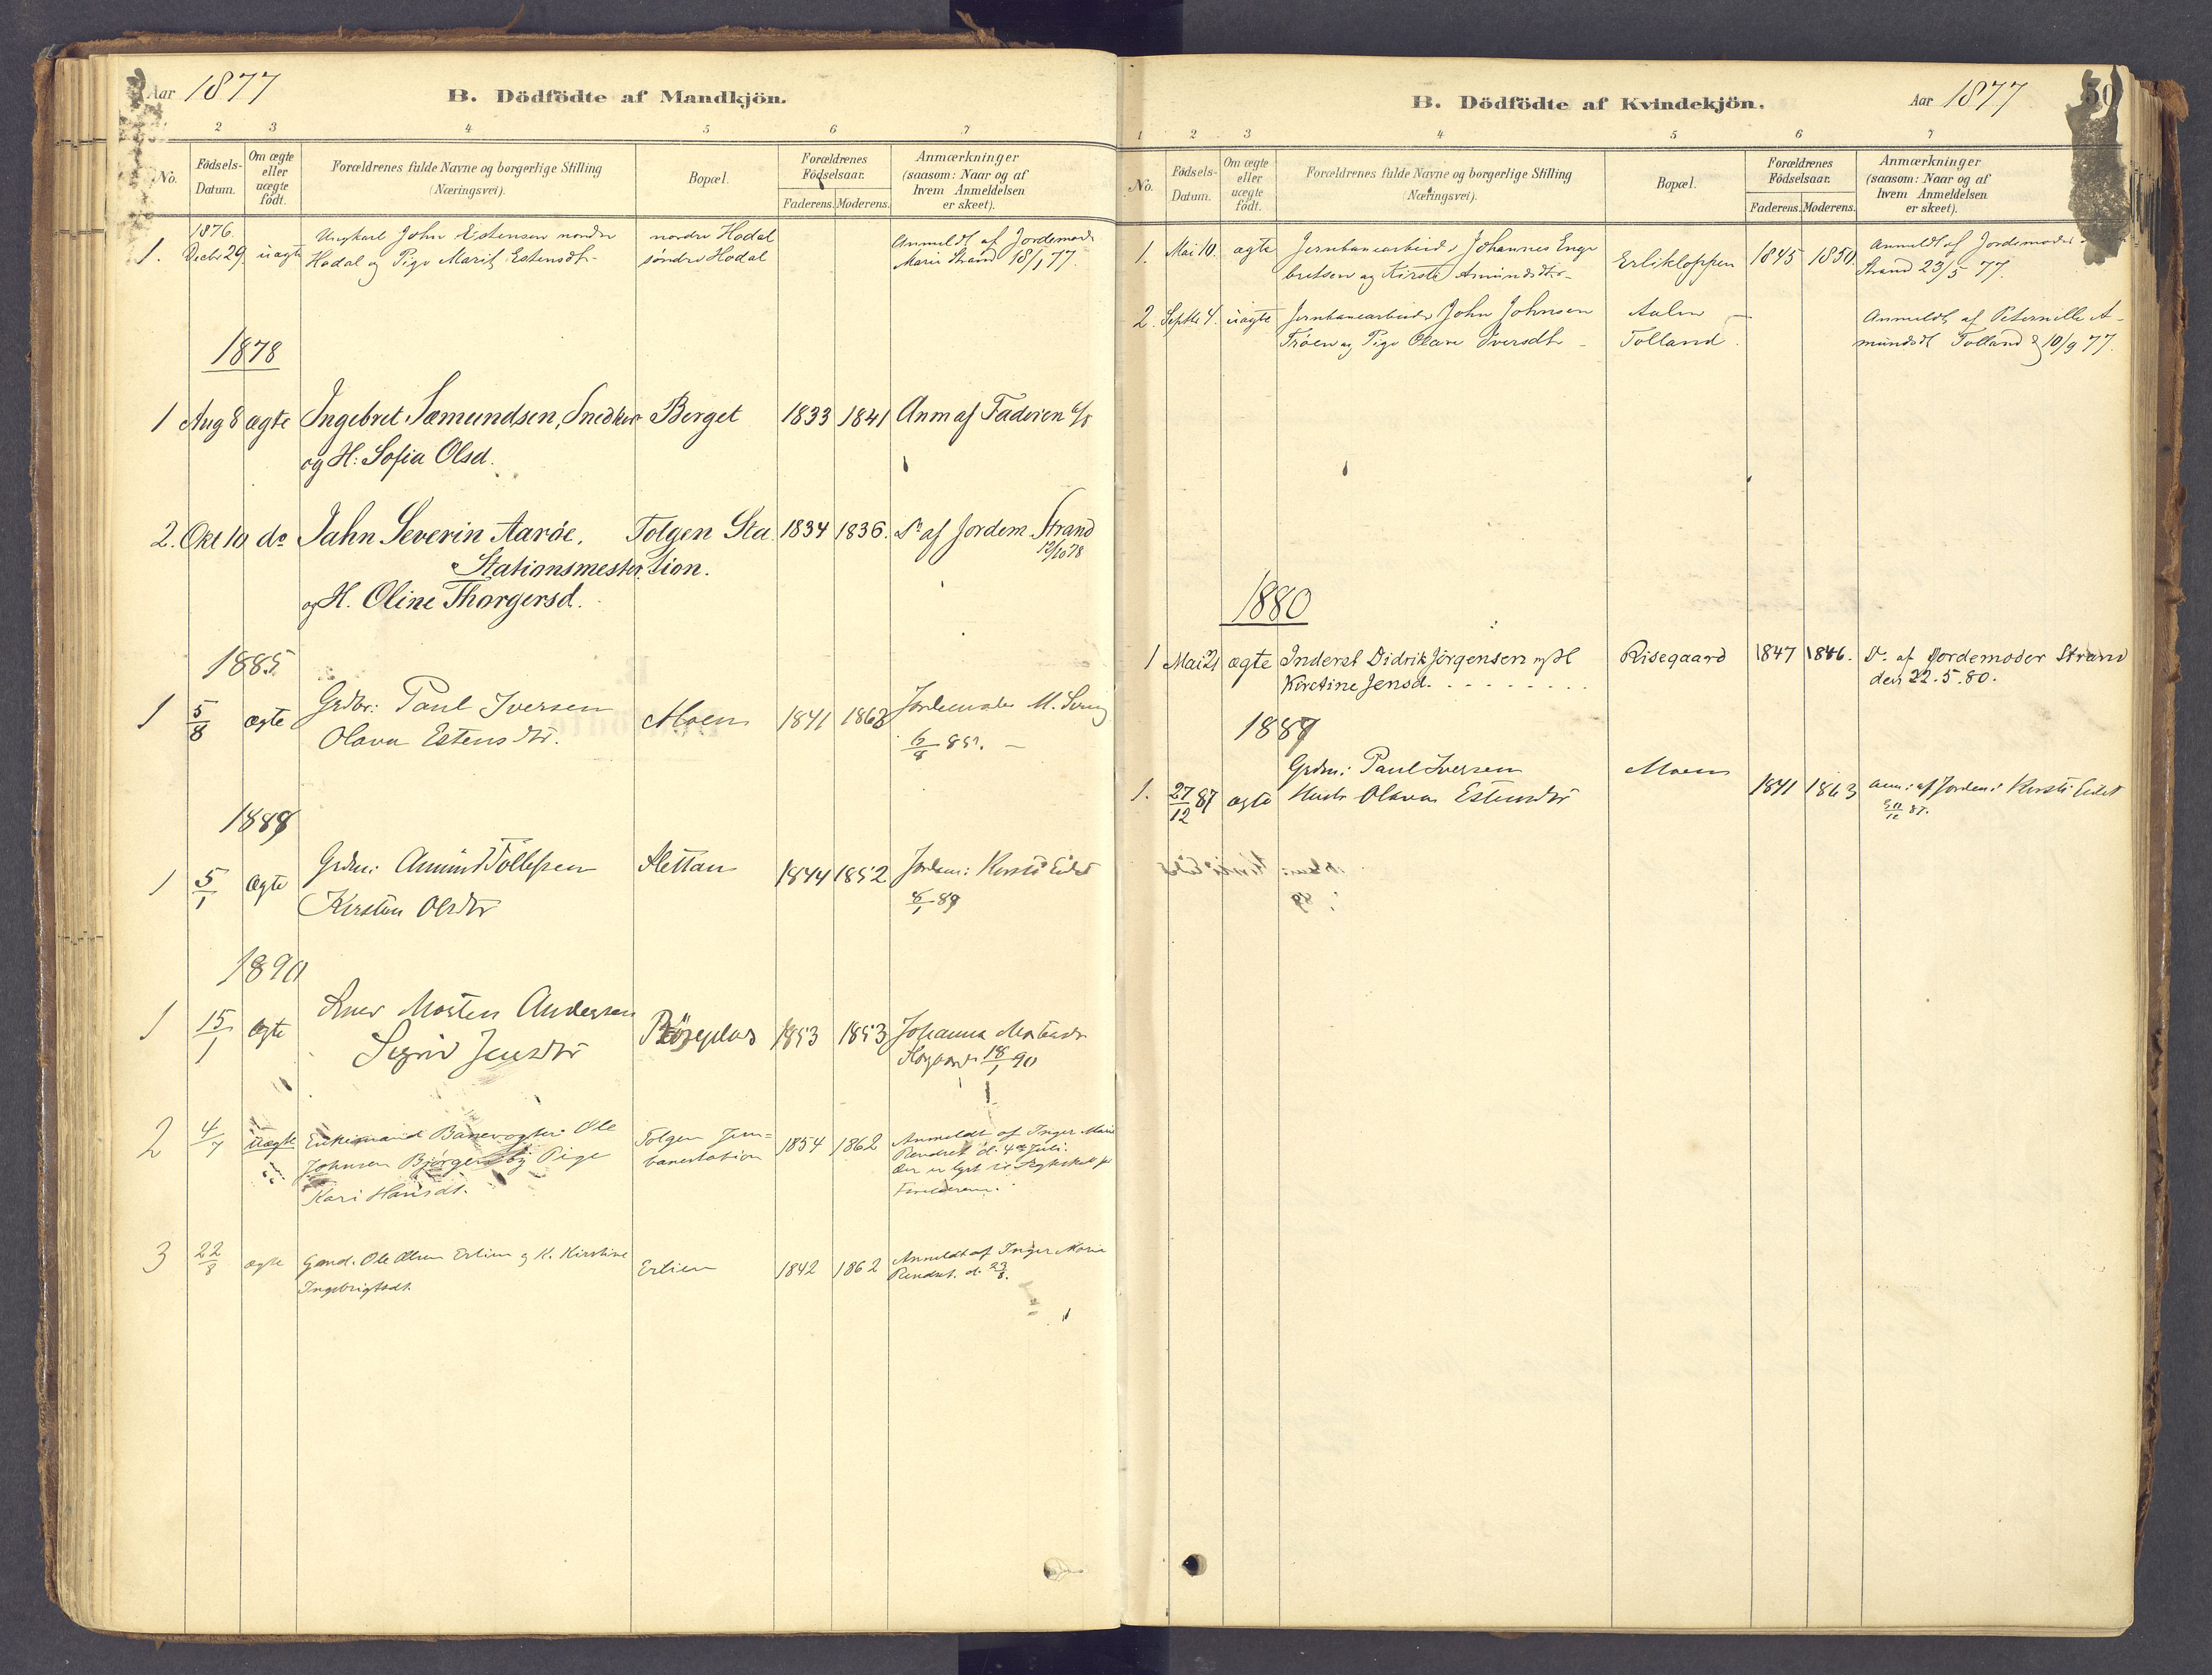 Aar 1877
B. Dödfödte af Mandkjön.
1 2 3 4 5 6 7
No. Födsels-Datum. Om ægte eller uægte födt. Forældrenes fulde Navne og borgerlige Stilling (Næringsvei). Bopæl. Forældrenes Födselsaar. Faderens. Moderens. Anmærkninger (saasom: Naar og af hvem Anmeldelsen er skeet).
1876.
1. Decbr 29. uægte Ungkarl John Estensen nordre nordre Hodal Anmeldt af Jordemoder
Hodal og Pige Marit Estensdtr søndre Hodal Marie Strand 18/1 77.
1878
1 Aug 8 ægte Ingebret Amundsen, Snedker Berget 1833 1841 Anm af Faderen
og H: Sofia Olsd.
2. Okt 10 do Jahn Severin Aaröe, Tolgen Sta 1834 1836. Do af Jordem. Strand
Stationsmester tion. 12/10 78
og H. Oline Thorgersd.
1885
1 5/8 ægte Grdbr: Paul Iversen Moen 1841 1863 Jordemoder M.
Olava Estensdtr. 6/8 85.
1889
1 5/1 ægte Grdm: Amund Tollefsen Slettan 1844 1852 Jordem: Kirsti Eidet
Kirsten Olsdtr 8/1 89
1890
1 15/1 ægte Morten Andersen 1853 1853 Johanna
Sigrid Jensdtr 18/1 90
2 4/7 uægte Enkemand Banevogter Ole Tolgen Jern= 1854 1862 Anmeldt af Inger Marie
Johnsen Pige banestation d. 4de Juli.
Kari Hansdt.
Forældrene.
3 22/8 ægte Gmd. Ole Olsen Erlien og K. Kirstine Erlien 1842 1862 Anmeldt af Inger Marie
Ingebrigtsdt. d. 23/8.
B. Dödfödte af Kvindekjön.
Aar 1877
50
1 2 3 4 5 6 7
No. Födsels-Datum. Om ægte eller uægte födt. Forældrenes fulde Navne og borgerlige Stilling (Næringsvei). Bopæl. Forældrenes Födselsaar. Faderens. Moderens. Anmærkninger (saasom: Naar og af hvem Anmeldelsen er skeet).
1. Mai 10. ægte Jernbanearbeider Johannes Enge Erlikloppen 1845 1850. Anmeldt af Jordemoder
bretsen og Kirsti Amundsdtr Strand 23/5 77.
2. Septbr 4. uægte Jernbanearbeider John Johnsen Aalen Anmeldt af Peternille A-
Trøen og Pige Olava Iversdtr Tolland mundsdt Tolland d 10/9 77.
1880
1 Mai 21 ægte Inderst Didrik Jörgensen og H Risegaard 1847 1846. Do. af Jordemoder Strand
Kirstine Jensd. den 22.5.80.
1887
1. 27/12 87 ægte Grdm: Paul Iversen Moen 1841 1863 anm: af Jordem: Kirsti Eidet
Hustr Olava Estensdtr 30/12 87.